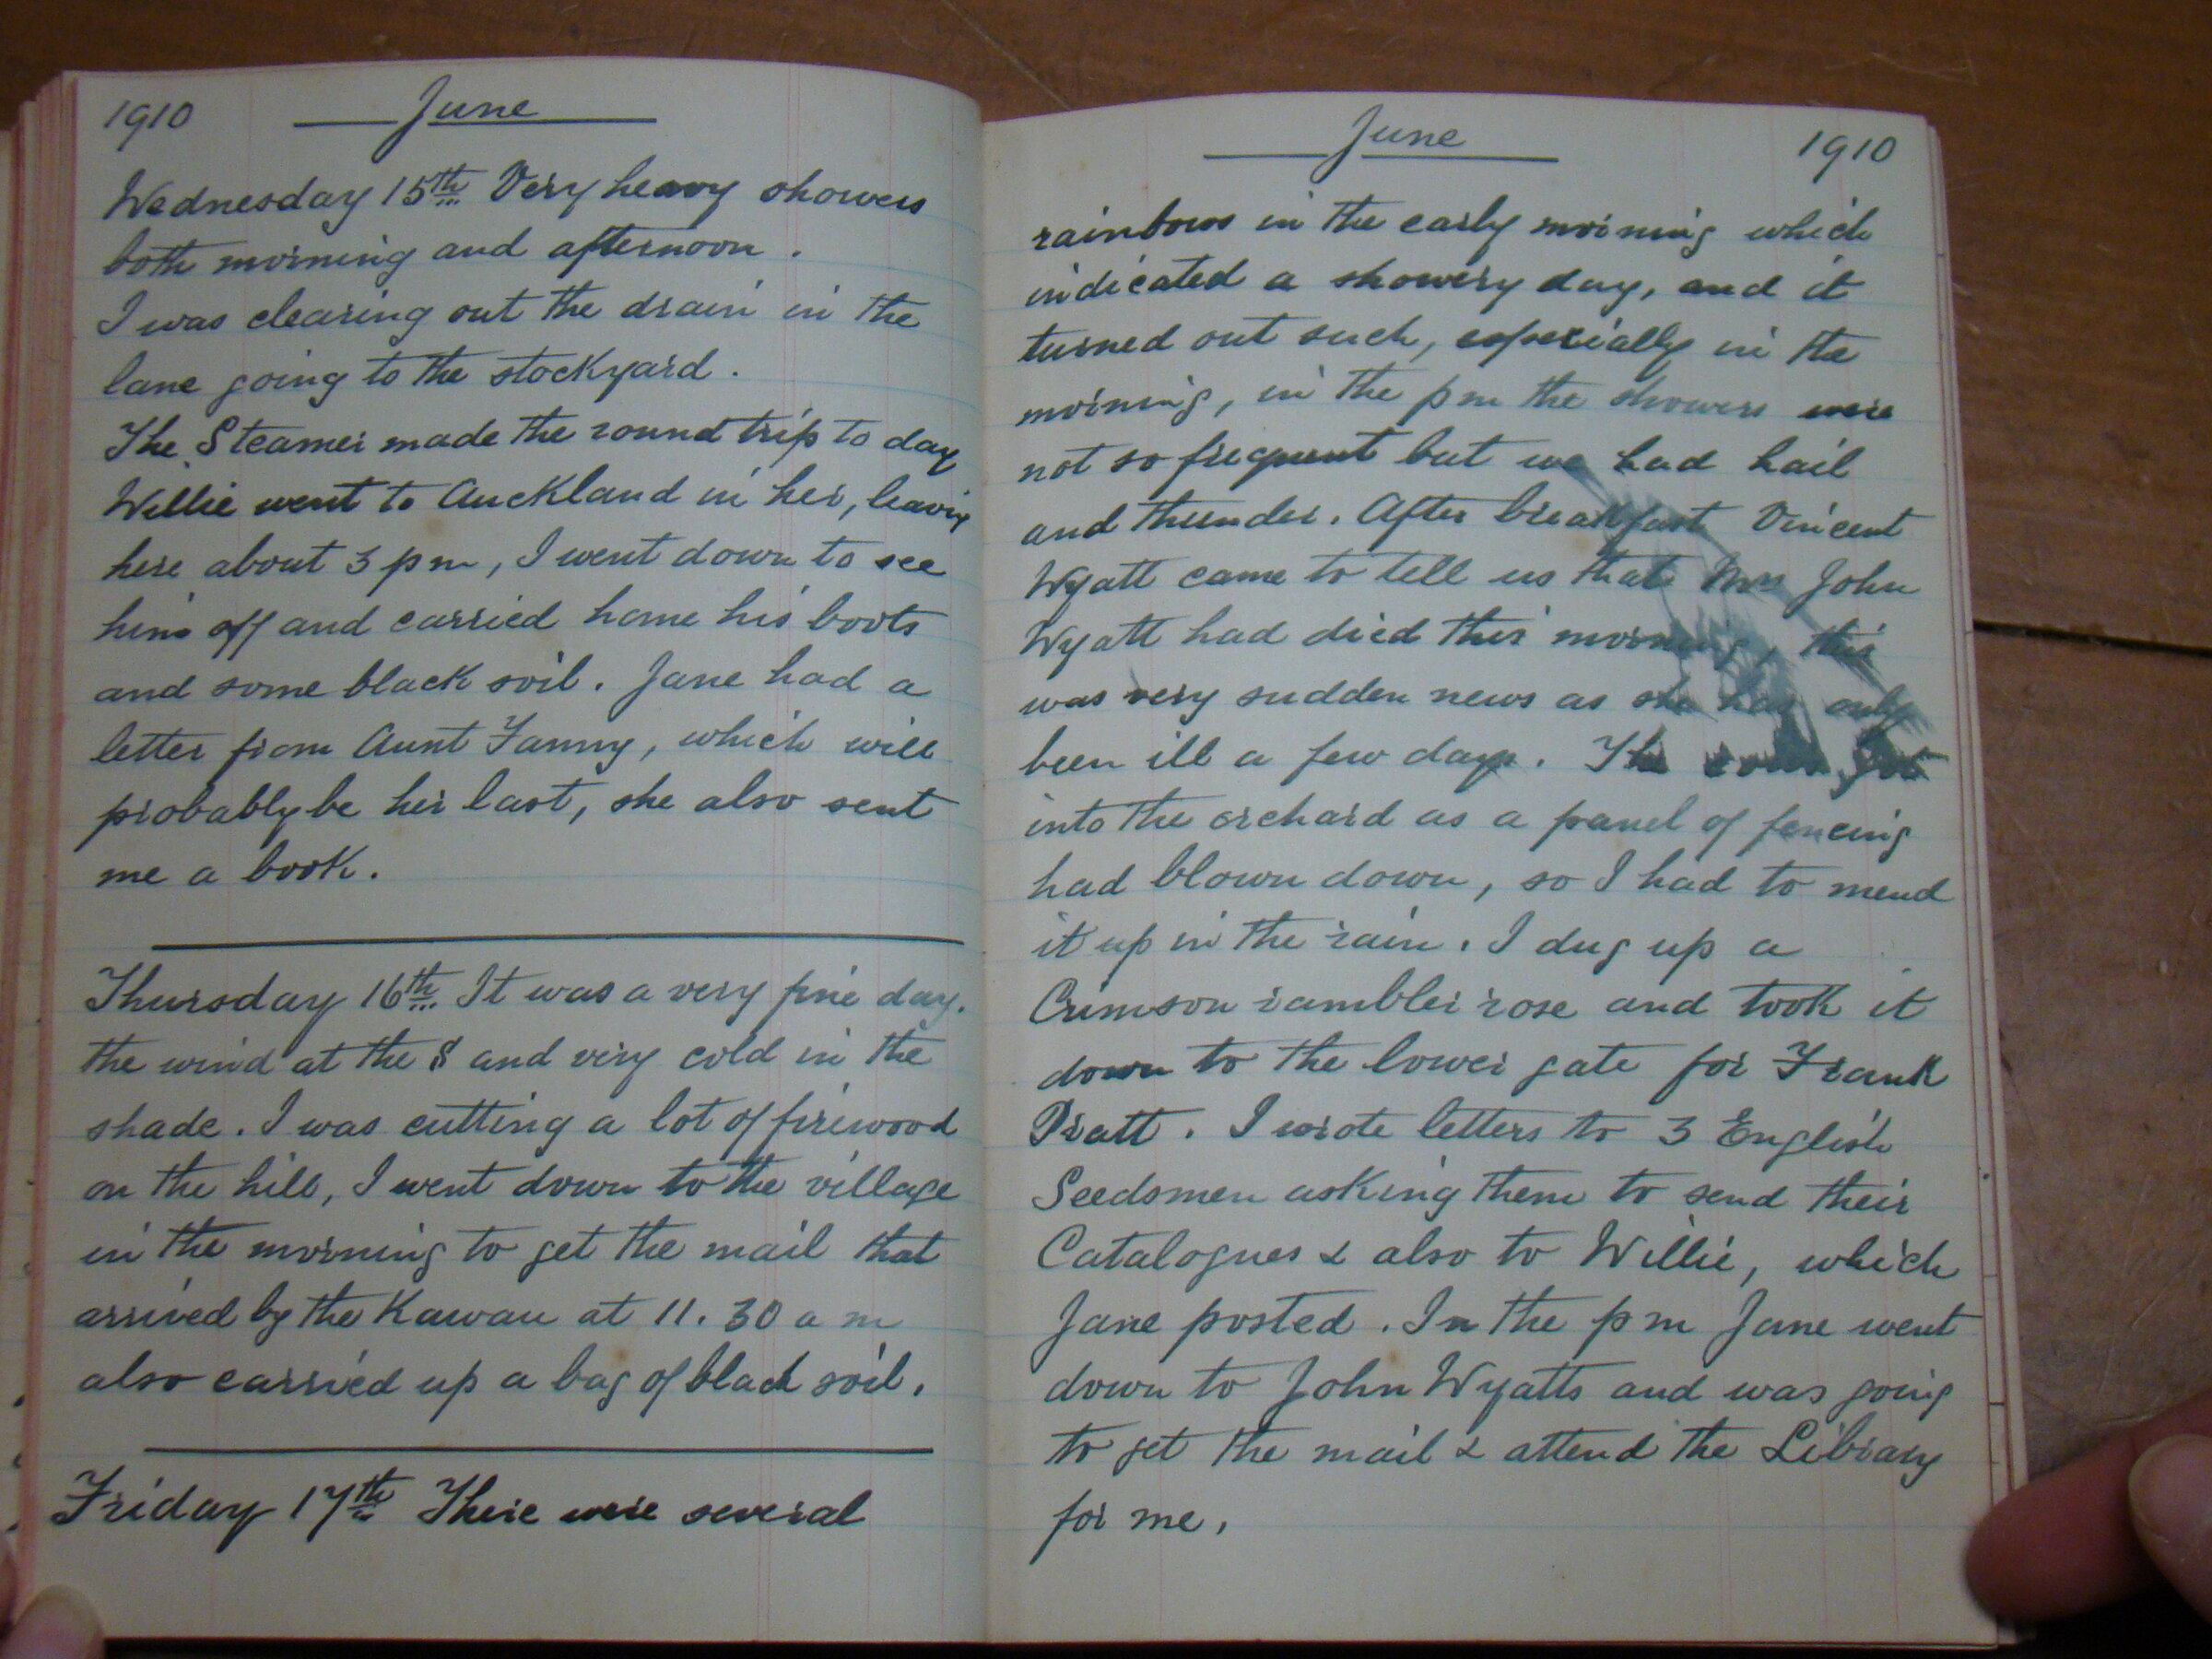 1910 June
Wednesday 15th Very heavy showers
both morning and afternoon.
I was clearing out the drain in the
lane going to the stockyard.
The Steamer made the round trip to day
Willie went to Auckland in her, leaving
here about 3 pm, I went down to see
him off and carried home his boots
and some black soil. Jane had a
letter from Aunt Fanny, which will
probably be her last, she also sent
me a book.
Thursday 16th It was a very fine day.
the wind at the S and very cold in the
shade. I was cutting a lot of firewood
on the hill, I went down to the village
in the morning to get the mail that
arrived by the Kawau at 11.30 a m
also carried up a bag of black soil.
Friday 17th There were several
June 1910
rainbows in the early morning which
indicated a showery day, and it
turned out such, especially in the
morning, in the pm the showers were
not so frequent but we had hail
and thunder. After breakfast Vincent
Wyatt came to tell us that Mrs John
Wyatt had died this morning, this
was very sudden news as she has only
been ill a few days. The got
into the orchard as a panel of fencing
had blown down, so I had to mend
it up in the rain. I dug up a
Crimson rambler rose and took it
down to the lower gate for Frank
Pratt. I wrote letters to 3 English
Seedsmen asking them to send their
Catalogues & also to Willie, which
Jane posted. In the pm Jane went
down to John Wyatts and was going
to get the mail & attend the Library
for me.